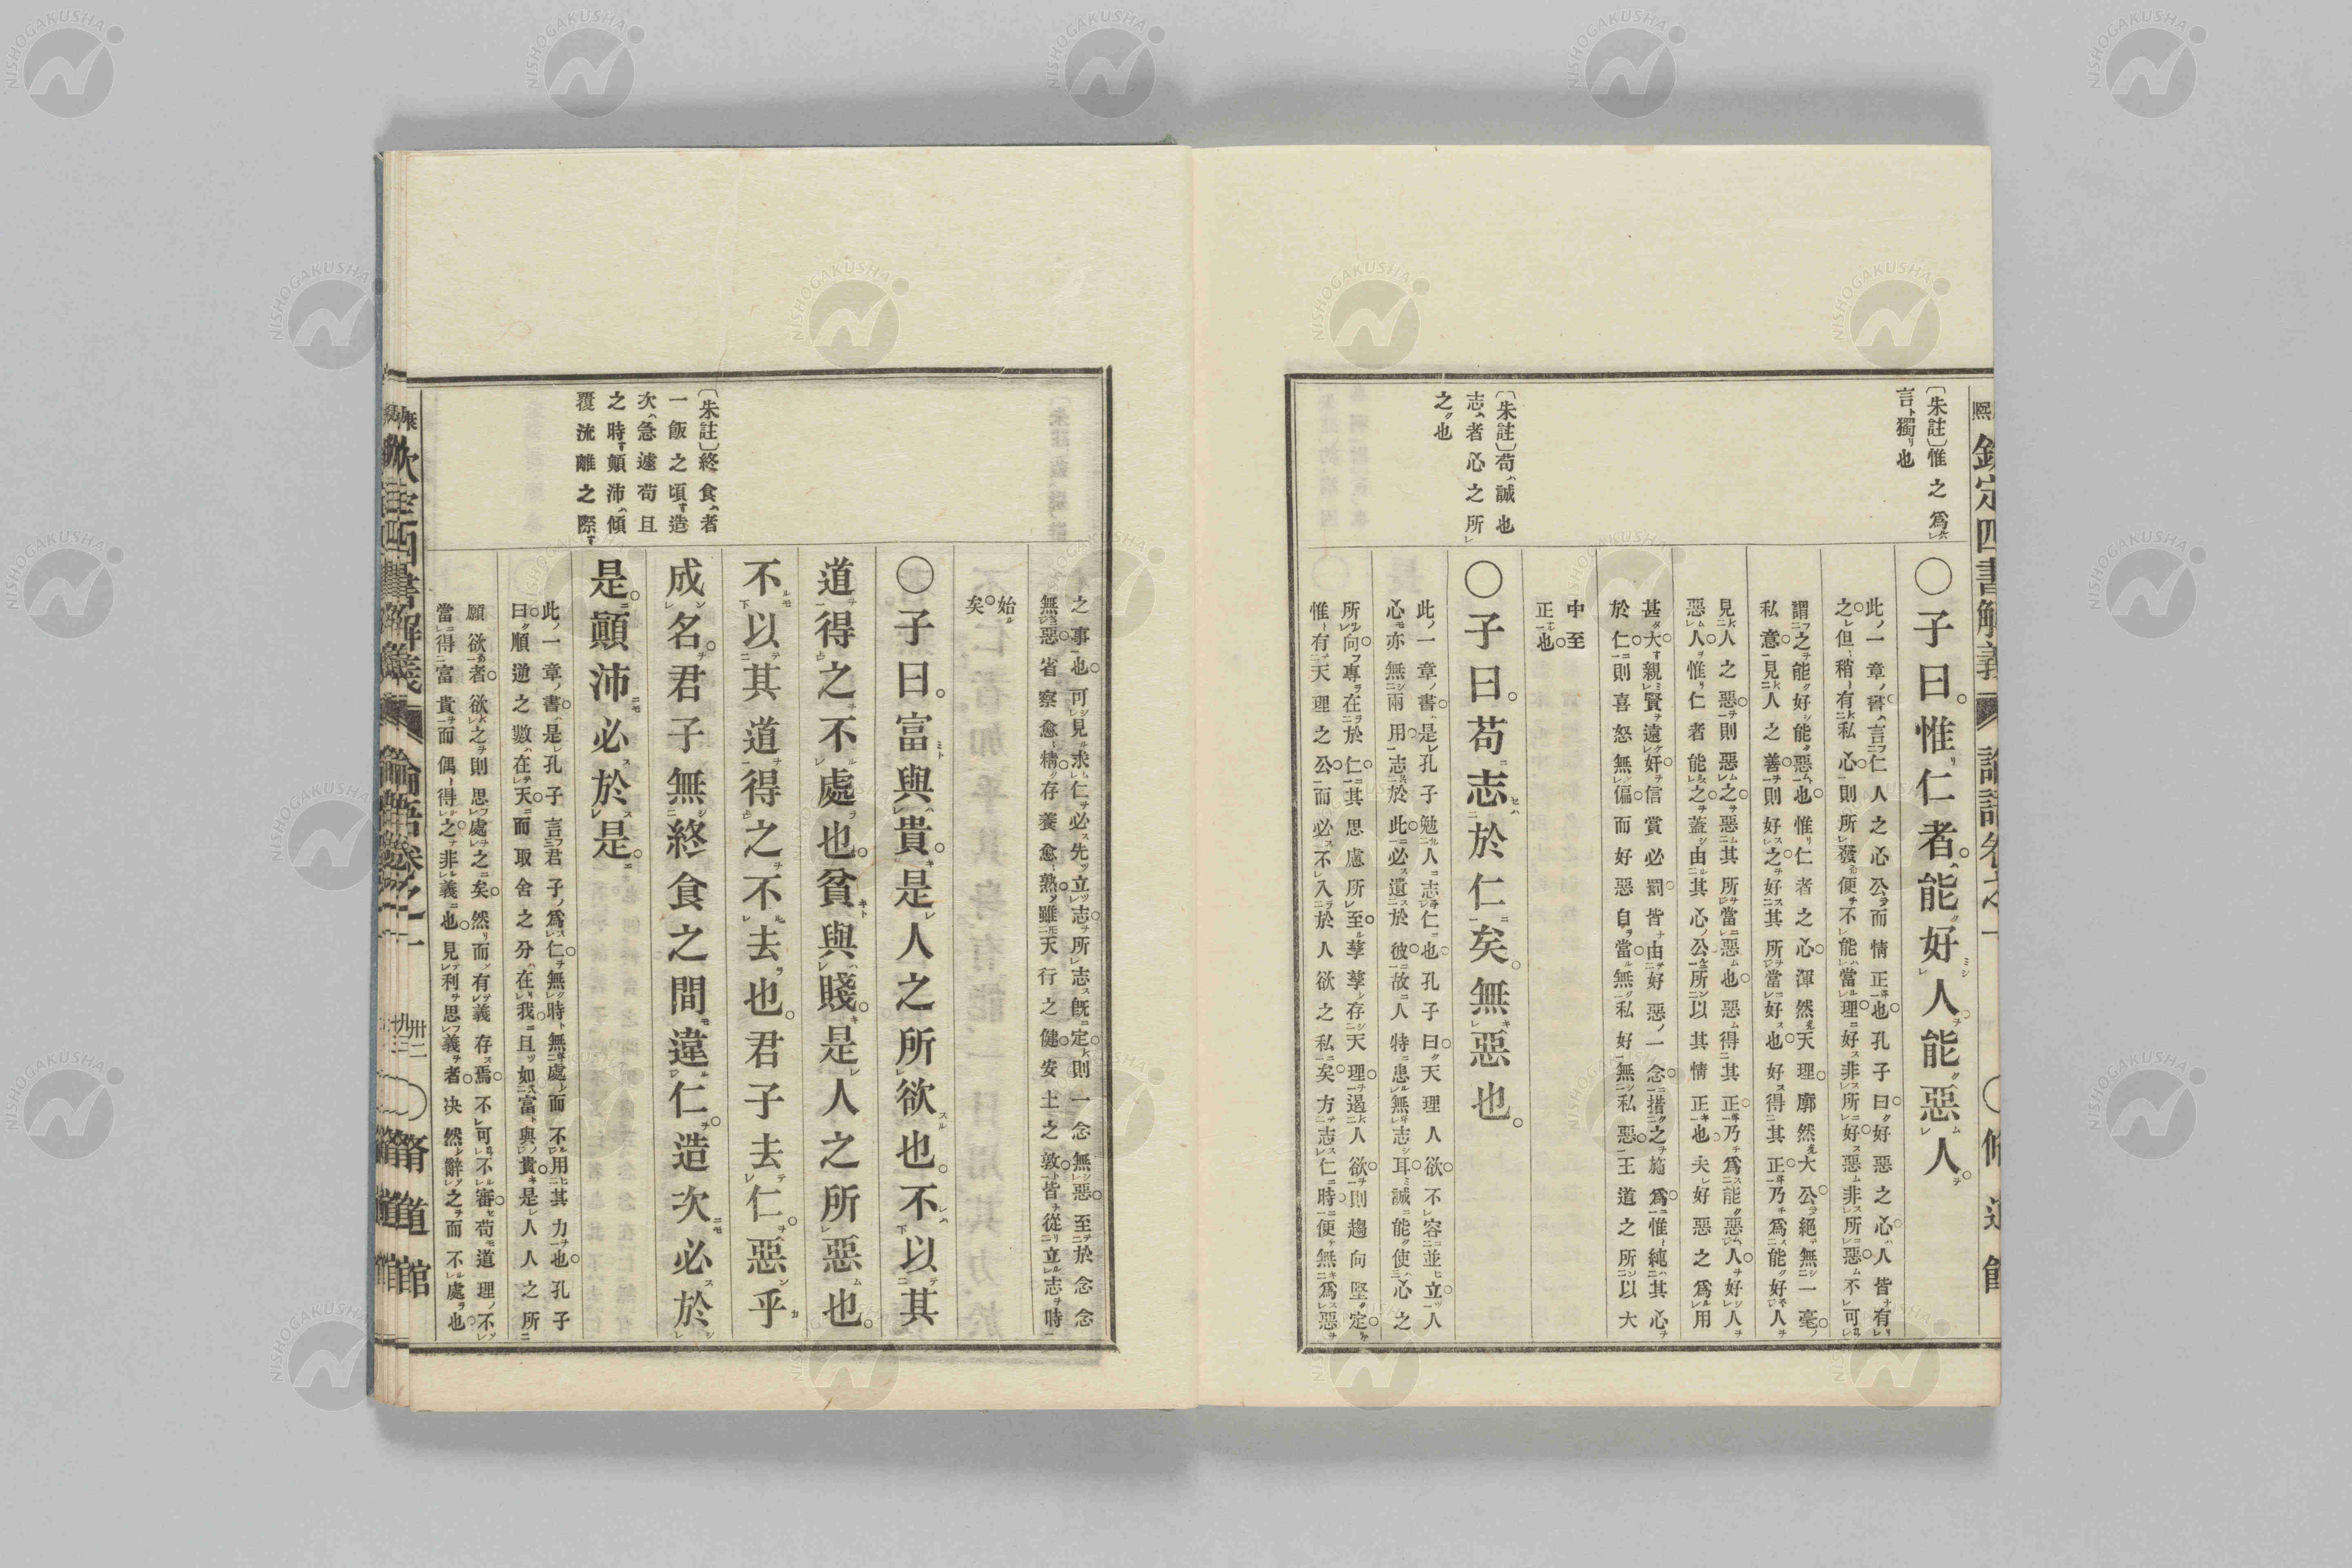 欽定四書解義 論語卷之一 〇脩道館
〔朱註〕惟之爲
言獨也
〇子曰。惟仁者。能好人。能惡人。
此一章書言仁人之心公而情正也孔子曰好惡之心人皆有
之但稍有私心則所發便不能當理好非所好惡非所惡不可
謂之能好能惡也惟仁者之心渾然天理廓然大公絕無一毫
私意見人之善則好之好其所當好也好得其正乃爲能好人
見人之惡則惡之惡其所當惡也惡得其正乃爲能惡人好人
惡人惟仁者能之蓋由其心公所以其情正也夫好惡之爲用
甚大親賢遠奸信賞必罰皆由好惡一念措之施爲惟純其心
於仁則喜怒無偏而好惡自當無私好無私惡王道之所以大
中至
正也
〔朱註〕苟誠也
志者心之所
之也
〇子曰。苟志於仁矣。無惡也。
此一章書是孔子勉人志仁也孔子曰天理人欲不容並立人
心亦無兩用志於此必遺於彼故人特患無志耳誠能使心之
所向專在於仁其思慮所至孳孳存天理遏人欲則趨向堅定
惟有天理之公而必不入於人欲之私矣方志仁時便無爲惡
之事也可見求仁必先立志所志既定則一念無惡至於念念
無惡省察愈精存養愈熟雖天行之健安土之敦皆從立志時
始
矣
〔朱註〕終食者
一飯之頃造
次急遽苟且
之時顛沛傾
覆流離之際
〇子曰。富與貴。是人之所欲也。不以其
道得之不處也。貧與賤。是人之所惡也。
不以其道得之不去也。君子去仁。惡乎
成名。君子無終食之間違仁。造次必於
是。顛沛必於是。
此一章書是孔子言君子爲仁無時無處而不用其力也孔子
曰順逆之數在天而取舍之分在我且如富與貴是人人之所
願欲者欲之則思處之矣然而有義存焉不可不審苟道理不
當得富貴而偶得之非義也見利思義者决然辭之而不處也
欽定四書解義 論語卷之一 卅二 〇脩道館